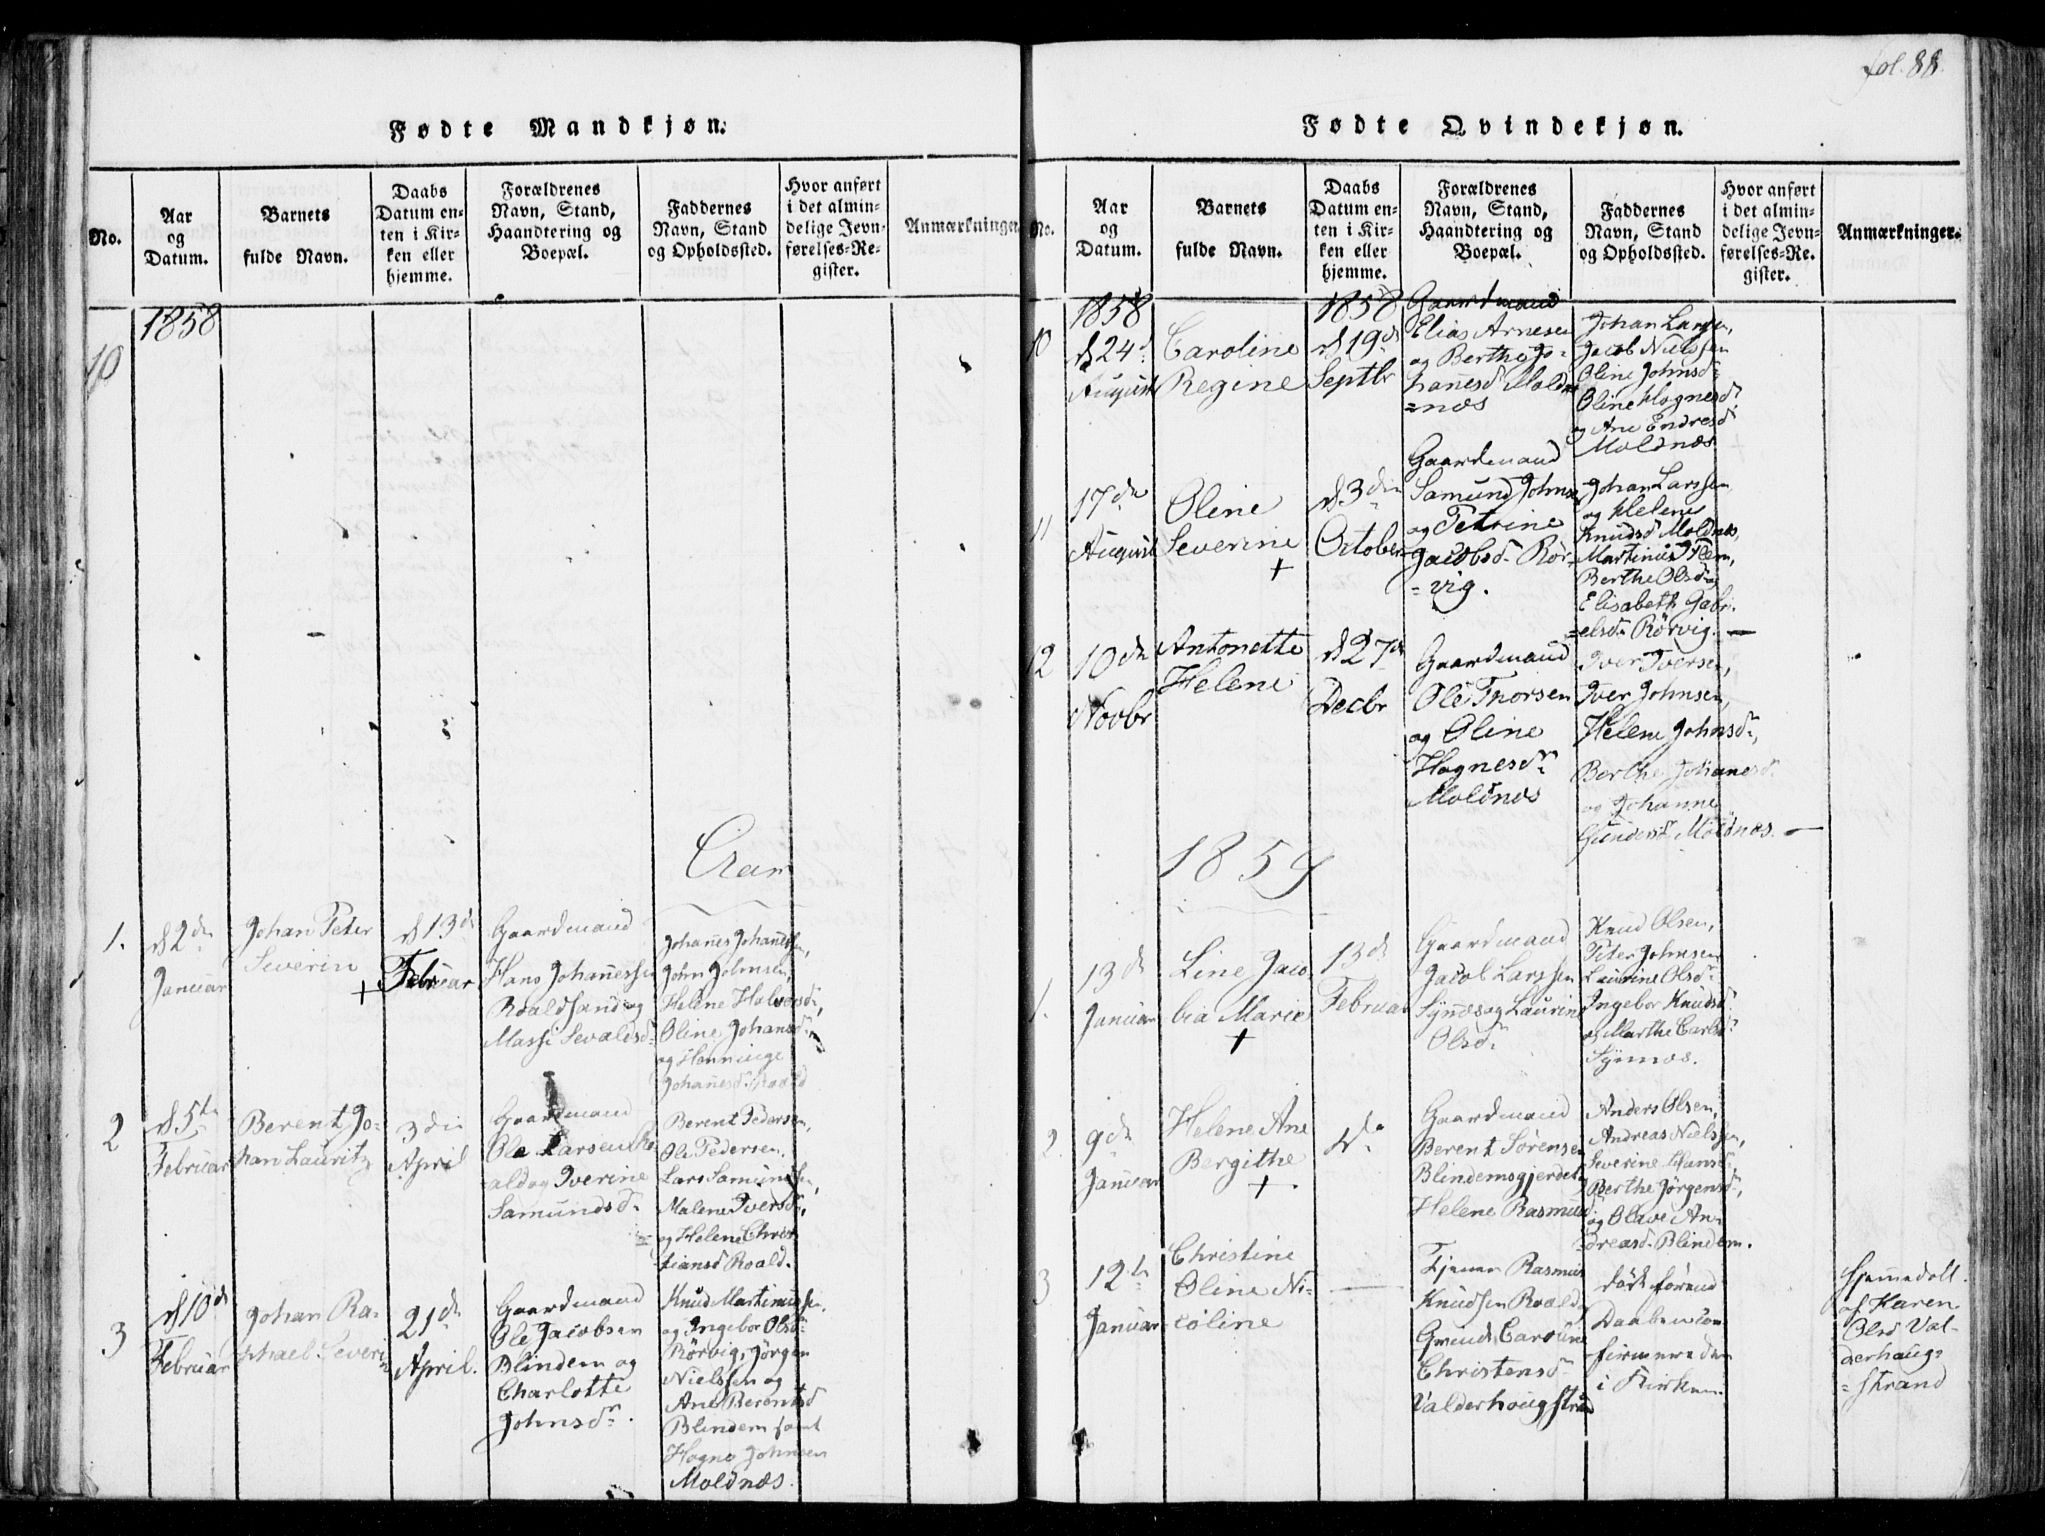 fol. 88.
Fødte Mandkjøn:
No.
Aar
og
Datum.
Barnets
fulde Navn.
Daabs
Datum en-
ten i Kir-
ken eller
hjemme.
Forældrenes
Navn, Stand,
Haandtering og
Boepæl.
Faddernes
Navn, Stand
og Opholdssted.
Hvor anført
i det almin-
delige Jevn-
førelses-Re-
gister.
Anmærkninger
1858
10
Aar
1.
d 2den
Januar
Johan Peter
Severin
+
d 13de
Februar
Gaardmand
Hans Johanessen
Roaldsand og
Massi Sevaldsd.
Johanes Johanessen,
John Johnsen,
Helene Halvorsd.,
Oline Johansd.
og Henninge
Johanesd. Roald
2
d 5te
Februar
Berent Jo-
han Lauritz
3die
April
Gaardmand
Ole Larsen Ro
ald og Iverine
Samundsd.
Berent Pedersen,
Ole Pedersen,
Lars Samundsen,
Malene Iversd.,
og Helene Chris
tiansd Roald.
3
d 10de
Februar
Johan Ra-
phael Severin
21de
April.
Gaardmand
Ole Jacobsen
Blindem og
Charlotte
Johnsd.
Knud Martinussen,
og Ingebor Olsd.
Rørvig, Jørgen
Nielssen og
Ane Berentsd
Blindem samt
Hogne Johnsen
Moldnæs.
Fødte Qvindekjøn.
No.
Aar
og
Datum.
Barnets
fulde Navn.
Daabs
Datum en-
ten i Kir-
ken eller
hjemme.
Forældrenes
Navn, Stand,
Haandtering og
Boepæl.
Faddernes
Navn, Stand
og Opholdssted.
Hvor anført
i det almin-
delige Jevn-
førelses-Re-
gister.
Anmærkninger.
1858
10
d 24d
August
Caroline
Regine
1858
d 19de
Septbr
Gaardmand
Elias Arnesen
og Berthe Jo-
hanesd Moldnæs
=næs
Johan Larsen,
Jacob Nielssen
Oline Johnsd.
Oline Hognesd.
og Ane Endresd
Moldnæs
11
17de
August
Oline
Severine
+
d 3die
October
Gaardmand
Samund Johnsen
og Petrine
Jacobsd. Rør-
=vig.
Johan Larssen
og Helene
Knudsd Moldnæs,
Martinus Flem,
Berthe Olsd og
Elisabeth Gabri
=elsd. Rørvig. —
12
10de
Novbr
Antonette
Helene
d 27de
Decbr
Gaardmand
Ole Thorsen
og Oline
Hognesd.
Moldnæs
Iver Iversen,
Iver Johnsen,
Helene Johnsd.,
Berthe Johanesd.
og Johanne
Gundersd. Moldnæs. —
1859
1.
13de
Januar
Line Jaco
bia Marie
+
13de
Februar
Gaardmand
Jacob Larssen
Synæs og Laurine
Olsd.
Knud Olsen,
Peter Johnsen
Laurine Olsd.
Ingebor Knudsd.
og Marthe Carlsd.
Synnæs.
2.
9de
Januar
Helene Ane
Bergithe
+
do
Gaardmand
Berent Sørensen
Blindemsgjerdet og
Helene Rasmusd
Anders Olsen,
Andreas Nielssen,
Severine Hansd.
Berthe Jørgensd.,
og Olave An-
=dreasd. Blindem.
3
12te
Januar
Christine
Oline Ni-
coline
—
Tjener Rasmus
Knudsen Roald
Gmds Caroline
Christensd.
Valderhougstrand
død forend
Daaben con
firmeredes
i Kirken.
Hjemmedøbt
af Karen
Olsd Val-
derhaug=
=strand